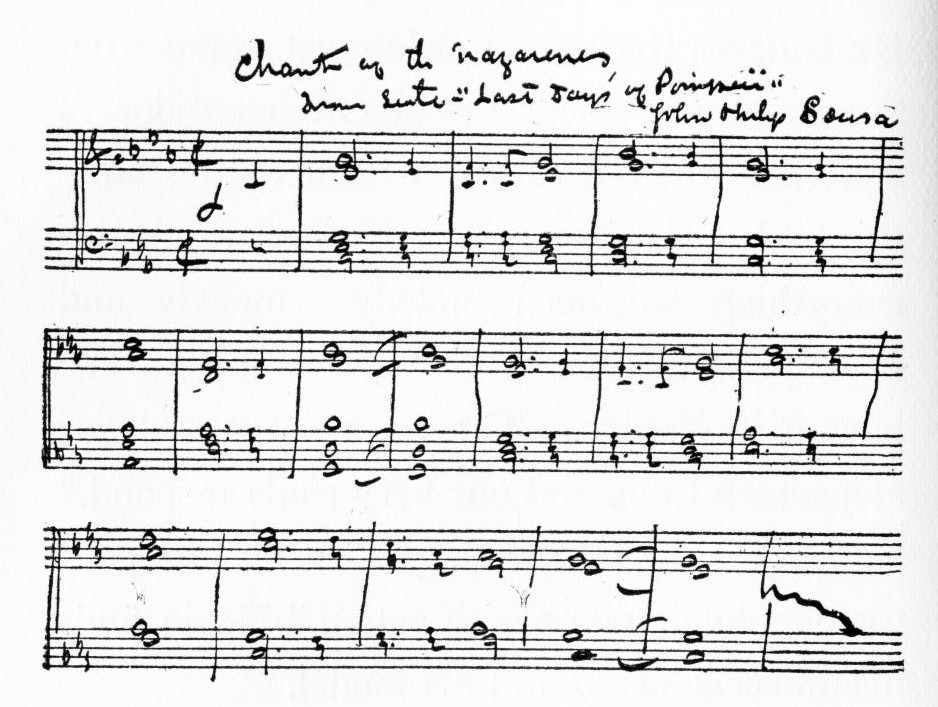 Chant of the Nazarenes
From Suite - "Last Days of Pompeii"
John Philip Sousa